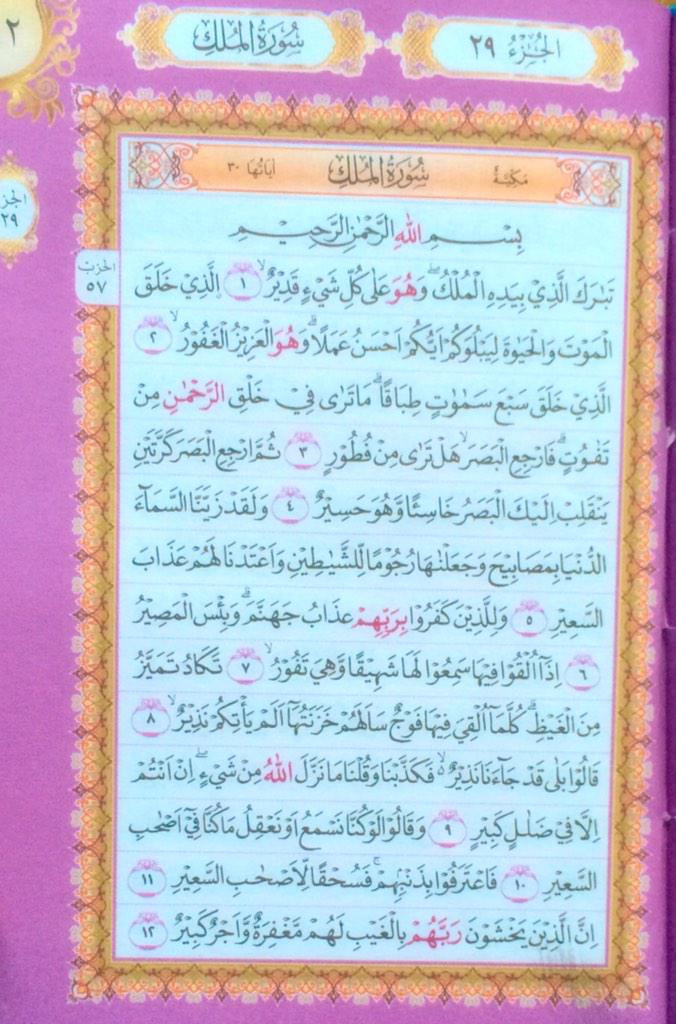 ٢
سُورَةُ الْمُلْكِ
الجُزْءُ ٢٩
الجز
٢٩
مَكِّيَّةٌ
سُورَةُ الْمُلْكِ
اٰيَاتُهَا ٣٠
بِسْمِ اللّٰهِ الرَّحْمٰنِ الرَّحِيْمِ
الحزب
٥٧
تَبٰرَكَ الَّذِيْ بِيَدِهِ الْمُلْكُۖ وَهُوَ عَلٰى كُلِّ شَيْءٍ قَدِيْرٌۙ ١ الَّذِيْ خَلَقَ
الْمَوْتَ وَالْحَيٰوةَ لِيَبْلُوَكُمْ اَيُّكُمْ اَحْسَنُ عَمَلًاۗ وَهُوَ الْعَزِيْزُ الْغَفُوْرُۙ ٢
الَّذِيْ خَلَقَ سَبْعَ سَمٰوٰتٍ طِبَاقًاۗ مَا تَرٰى فِيْ خَلْقِ الرَّحْمٰنِ مِنْ
تَفٰوُتٍۗ فَارْجِعِ الْبَصَرَۙ هَلْ تَرٰى مِنْ فُطُوْرٍ ٣ ثُمَّ ارْجِعِ الْبَصَرَ كَرَّتَيْنِ
يَنْقَلِبْ اِلَيْكَ الْبَصَرُ خَاسِئًا وَّهُوَ حَسِيْرٌ ٤ وَلَقَدْ زَيَّنَّا السَّمَاۤءَ
الدُّنْيَا بِمَصَابِيْحَ وَجَعَلْنٰهَا رُجُوْمًا لِّلشَّيٰطِيْنِ وَاَعْتَدْنَا لَهُمْ عَذَابَ
السَّعِيْرِ ٥ وَلِلَّذِيْنَ كَفَرُوْا بِرَبِّهِمْ عَذَابُ جَهَنَّمَۗ وَبِئْسَ الْمَصِيْرُ
٦ اِذَآ اُلْقُوْا فِيْهَا سَمِعُوْا لَهَا شَهِيْقًا وَّهِيَ تَفُوْرُۙ ٧ تَكَادُ تَمَيَّزُ
مِنَ الْغَيْظِۗ كُلَّمَآ اُلْقِيَ فِيْهَا فَوْجٌ سَاَلَهُمْ خَزَنَتُهَآ اَلَمْ يَأْتِكُمْ نَذِيْرٌۙ ٨
قَالُوْا بَلٰى قَدْ جَاۤءَنَا نَذِيْرٌ ەۙ فَكَذَّبْنَا وَقُلْنَا مَا نَزَّلَ اللّٰهُ مِنْ شَيْءٍۖ اِنْ اَنْتُمْ
اِلَّا فِيْ ضَلٰلٍ كَبِيْرٍ ٩ وَقَالُوْا لَوْ كُنَّا نَسْمَعُ اَوْ نَعْقِلُ مَا كُنَّا فِيْٓ اَصْحٰبِ
السَّعِيْرِ ١٠ فَاعْتَرَفُوْا بِذَنْۢبِهِمْۚ فَسُحْقًا لِّاَصْحٰبِ السَّعِيْرِ ١١
اِنَّ الَّذِيْنَ يَخْشَوْنَ رَبَّهُمْ بِالْغَيْبِ لَهُمْ مَّغْفِرَةٌ وَّاَجْرٌ كَبِيْرٌ ١٢